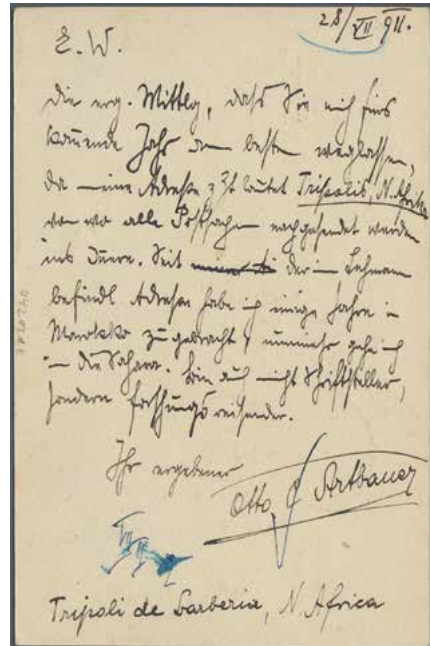 28/VII 911.
E. W.
die erg. Mittlg, dass Sie mich fürs
kommende Jahr am besten weglassen,
da meine Adresse z Zt lautet Tripolis, N. Afrika
von wo alle Postsachen nachgesendet werden
ins Innere. Seit der im Lehmann
befindl Adresse habe ich einige Jahre in
Marokko zugebracht, nunmehr gehe ich
in die Sahara. Bin auch nicht Schriftsteller,
sondern Forschungsreisender.
Ihr ergebener
Otto C Artbauer
Tripoli de Barberia, N. Africa